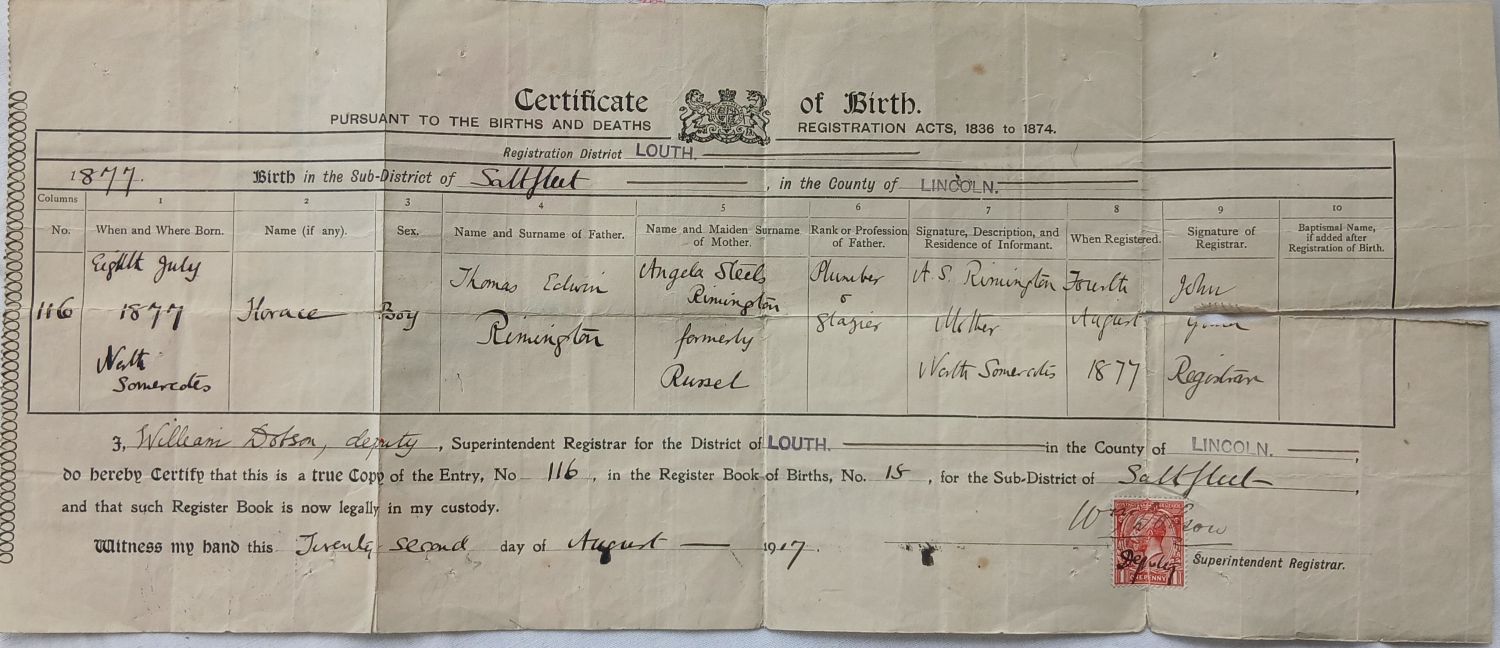 Certificate of Birth.
PURSUANT TO THE BIRTHS AND DEATHS REGISTRATION ACTS, 1836 to 1874.
Registration District LOUTH.
1877. Birth in the Sub-District of Saltfleet, in the County of LINCOLN.
Columns 1 2 3 4 5 6 7 8 9 10
No. When and Where Born. Name (if any). Sex. Name and Surname of Father. Name and Maiden Surname of Mother. Rank or Profession of Father. Signature, Description, and Residence of Informant. When Registered. Signature of Registrar. Baptismal Name, if added after Registration of Birth.
Eighth July Thomas Edwin Angela Steels Rimington Plumber A. S. Rimington Fourth John
116 1877 Horace Boy Rimington formerly & Glazier Mother August
North Somercotes Russel North Somercotes 1877 Registrar
I, William Dobson, deputy, Superintendent Registrar for the District of LOUTH. in the County of LINCOLN.,
do hereby Certify that this is a true Copy of the Entry, No 116, in the Register Book of Births, No. 15, for the Sub-District of Saltfleet,
and that such Register Book is now legally in my custody.
Wm Dobson
Witness my hand this Twenty second day of August 1917. Deputy Superintendent Registrar.
ONE PENNY